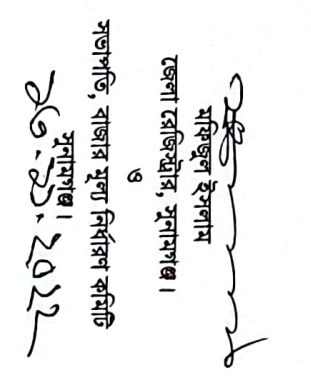 মফিজুল ইসলাম
জেলা রেজিস্ট্রার, সুনামগঞ্জ।
ও
সভাপতি, বাজার মূল্য নির্ধারণ কমিটি
সুনামগঞ্জ।